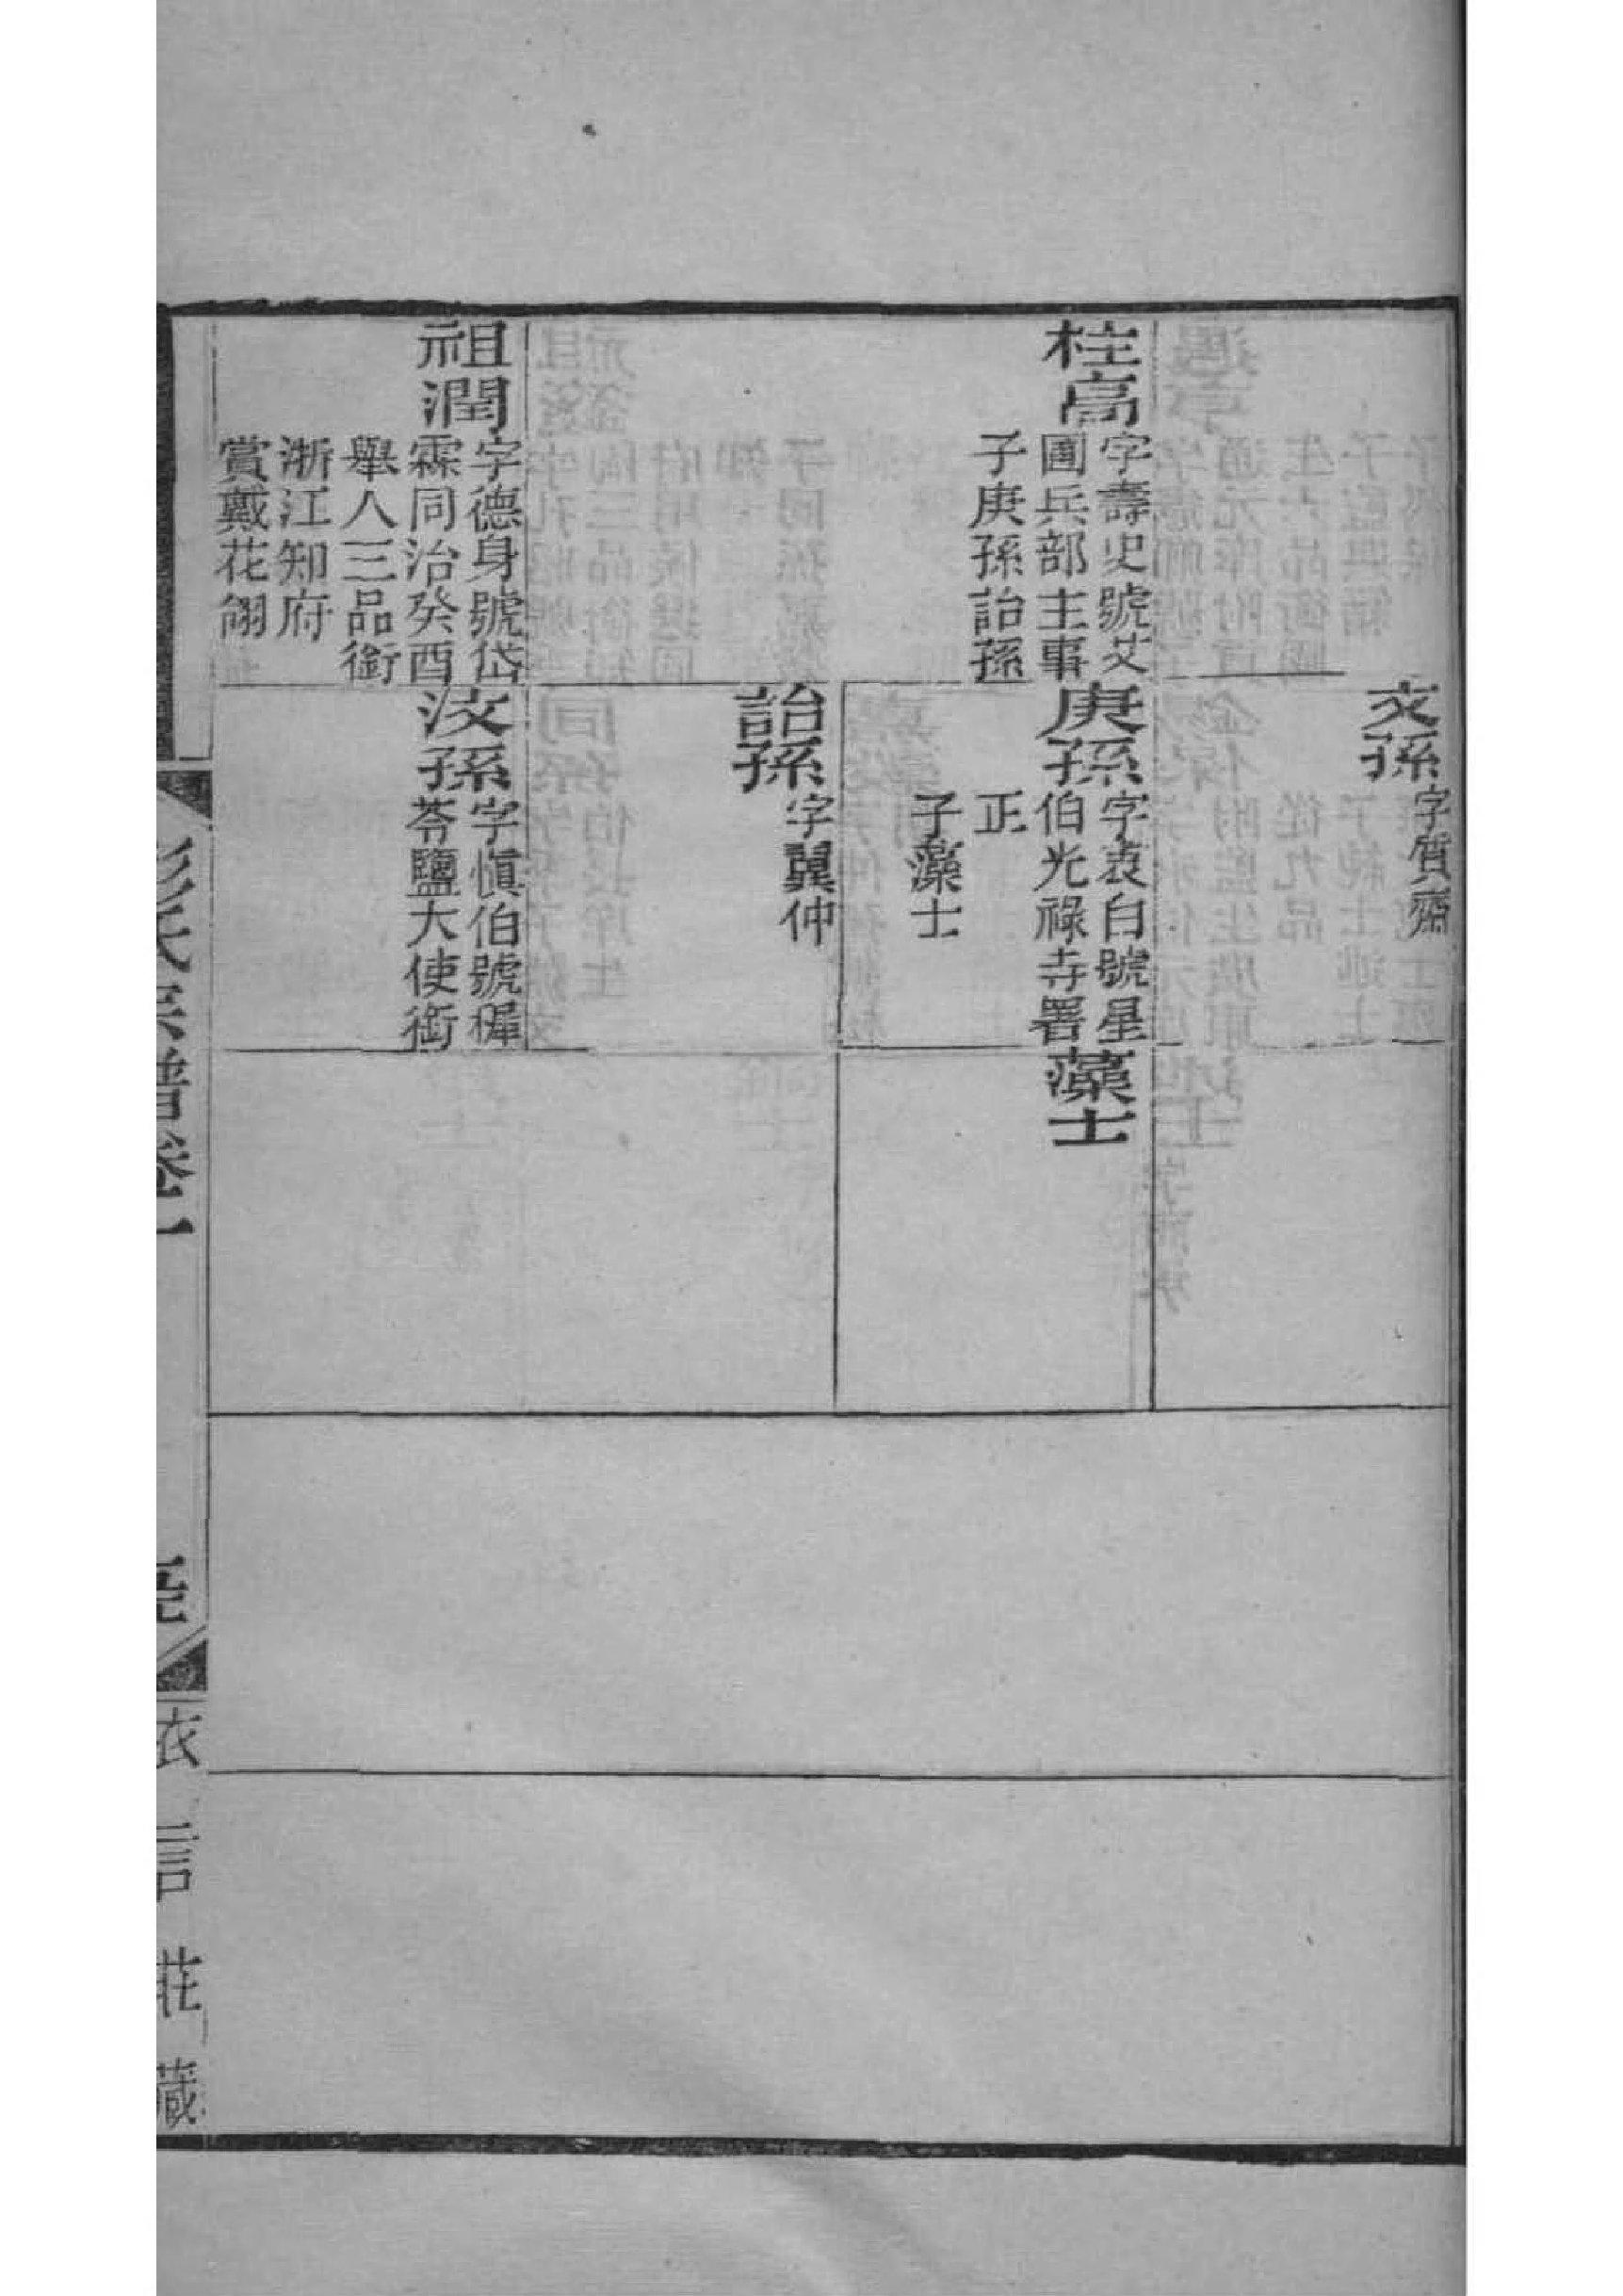 文孫
字質齋
桂高
字壽史號艾
圃兵部主事
子庚孫詒孫
庚孫
字衷白號星
伯光祿寺署
正
子藻士
藻士
詒孫
字翼仲
祖潤
字德身號岱
霖同治癸酉
舉人三品銜
浙江知府
賞戴花翎
汶孫
字慎伯號穉
苓鹽大使銜
彭氏宗譜卷一
衣言莊藏